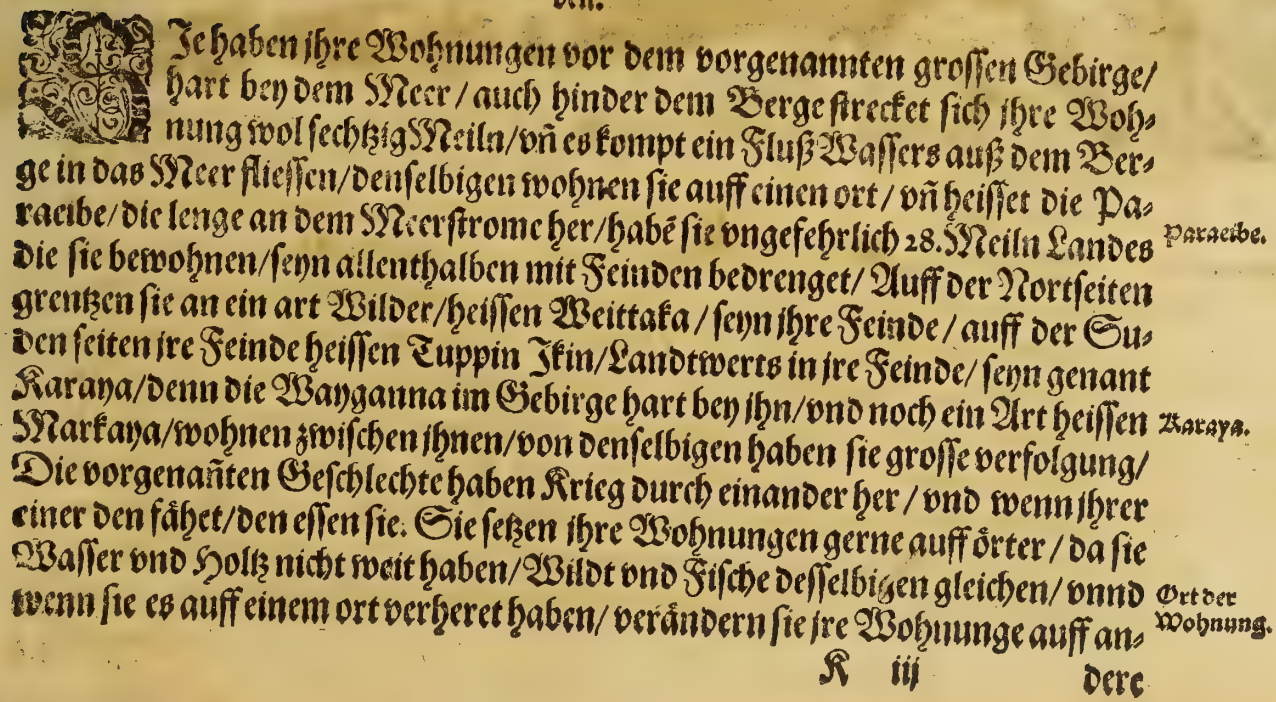 den.
SJe haben jhre Wohnungen vor dem vorgenannten grossen Gebirge/
hart bey dem Meer/ auch hinder dem Berge strecket sich jhre Woh⸗
nung wol sechtzig Meiln/ vñ es kompt ein Fluß Wassers auß dem Ber⸗
ge in das Meer fliessen/ denselbigen wohnen sie auff einen ort/ vñ heisset die Pa⸗
raeibe/ die lenge an dem Meerstrome her/ habẽ sie vngefehrlich 28. Meiln Landes
Paraeibe.
die sie bewohnen/ seyn allenthalben mit Feinden bedrenget/ Auff der Nortseiten
grentzen sie an ein art Wilder/ heissen Weittaka/ seyn jhre Feinde/ auff der Su⸗
den seiten jre Feinde heissen Tuppin Jkin/ Landtwerts in jre Feinde/ seyn genant
Karaya/ denn die Wayganna im Gebirge hart bey jhn/ vnd noch ein Art heissen
Karaya.
Markaya/ wohnen zwischen jhnen/ von denselbigen haben sie grosse verfolgung/
Die vorgenañten Geschlechte haben Krieg durch einander her/ vnd wenn jhrer
einer den fähet/ den essen sie. Sie setzen jhre Wohnungen gerne auff örter/ da sie
Wasser vnd Holtz nicht weit haben/ Wildt vnd Fische desselbigen gleichen/ vnnd
Ort der
wenn sie es auff einem ort verheret haben/ verändern sie jre Wohnunge auff an⸗
Wohnung.
K iij dere